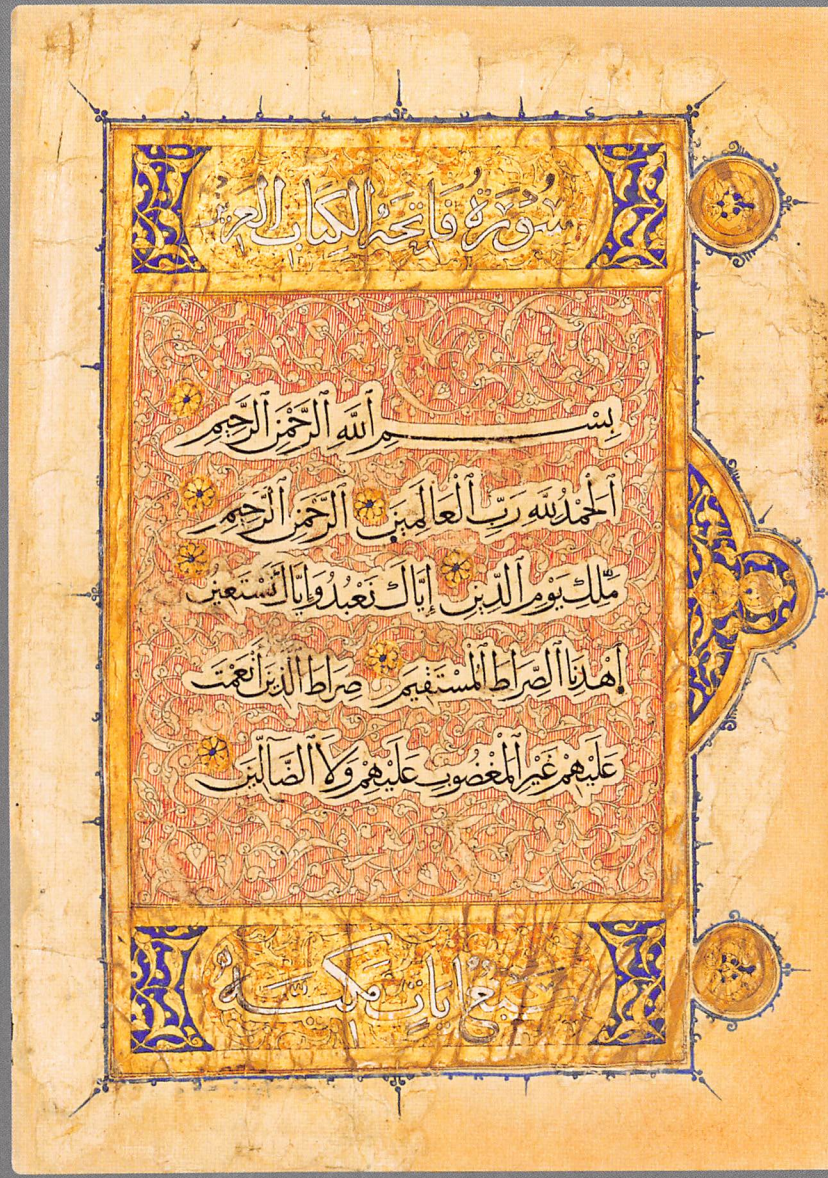 سُورَةُ فَاتِحَةِ الْكِتَابِ الْعَزِيزِ
بِسْمِ ٱللَّهِ ٱلرَّحْمَٰنِ ٱلرَّحِيمِ
ٱلْحَمْدُ لِلَّهِ رَبِّ ٱلْعَالَمِينَ ٱلرَّحْمَٰنِ ٱلرَّحِيمِ
مَٰلِكِ يَوْمِ ٱلدِّينِ إِيَّاكَ نَعْبُدُ وَإِيَّاكَ نَسْتَعِينُ
ٱهْدِنَا ٱلصِّرَاطَ ٱلْمُسْتَقِيمَ صِرَاطَ ٱلَّذِينَ أَنْعَمْتَ
عَلَيْهِمْ غَيْرِ ٱلْمَغْضُوبِ عَلَيْهِمْ وَلَا ٱلضَّآلِّينَ
سبع ايات مكية